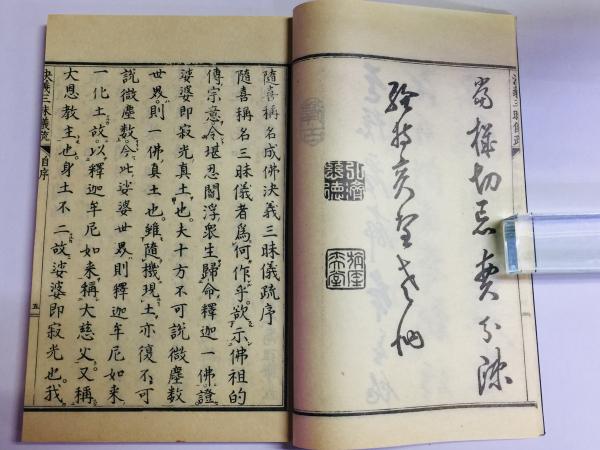 當機切忌費分疎
隨喜稱名成佛決義三昧儀疏序
隨喜稱名三昧儀者爲何作乎。欲示佛祖的
傳宗意令堪忍閻浮衆生歸命釋迦一佛證
娑婆即寂光真土也。夫十方不可說微塵數
世界。則一佛真土也。雖隨機現土亦復不可
說微塵數。今此娑婆世界。則釋迦牟尼如來
一化土故。以釋迦牟尼如來稱大慈父。又稱
大恩教主也。身土不二故。娑婆即寂光也。我
決義三昧儀疏 自序 五